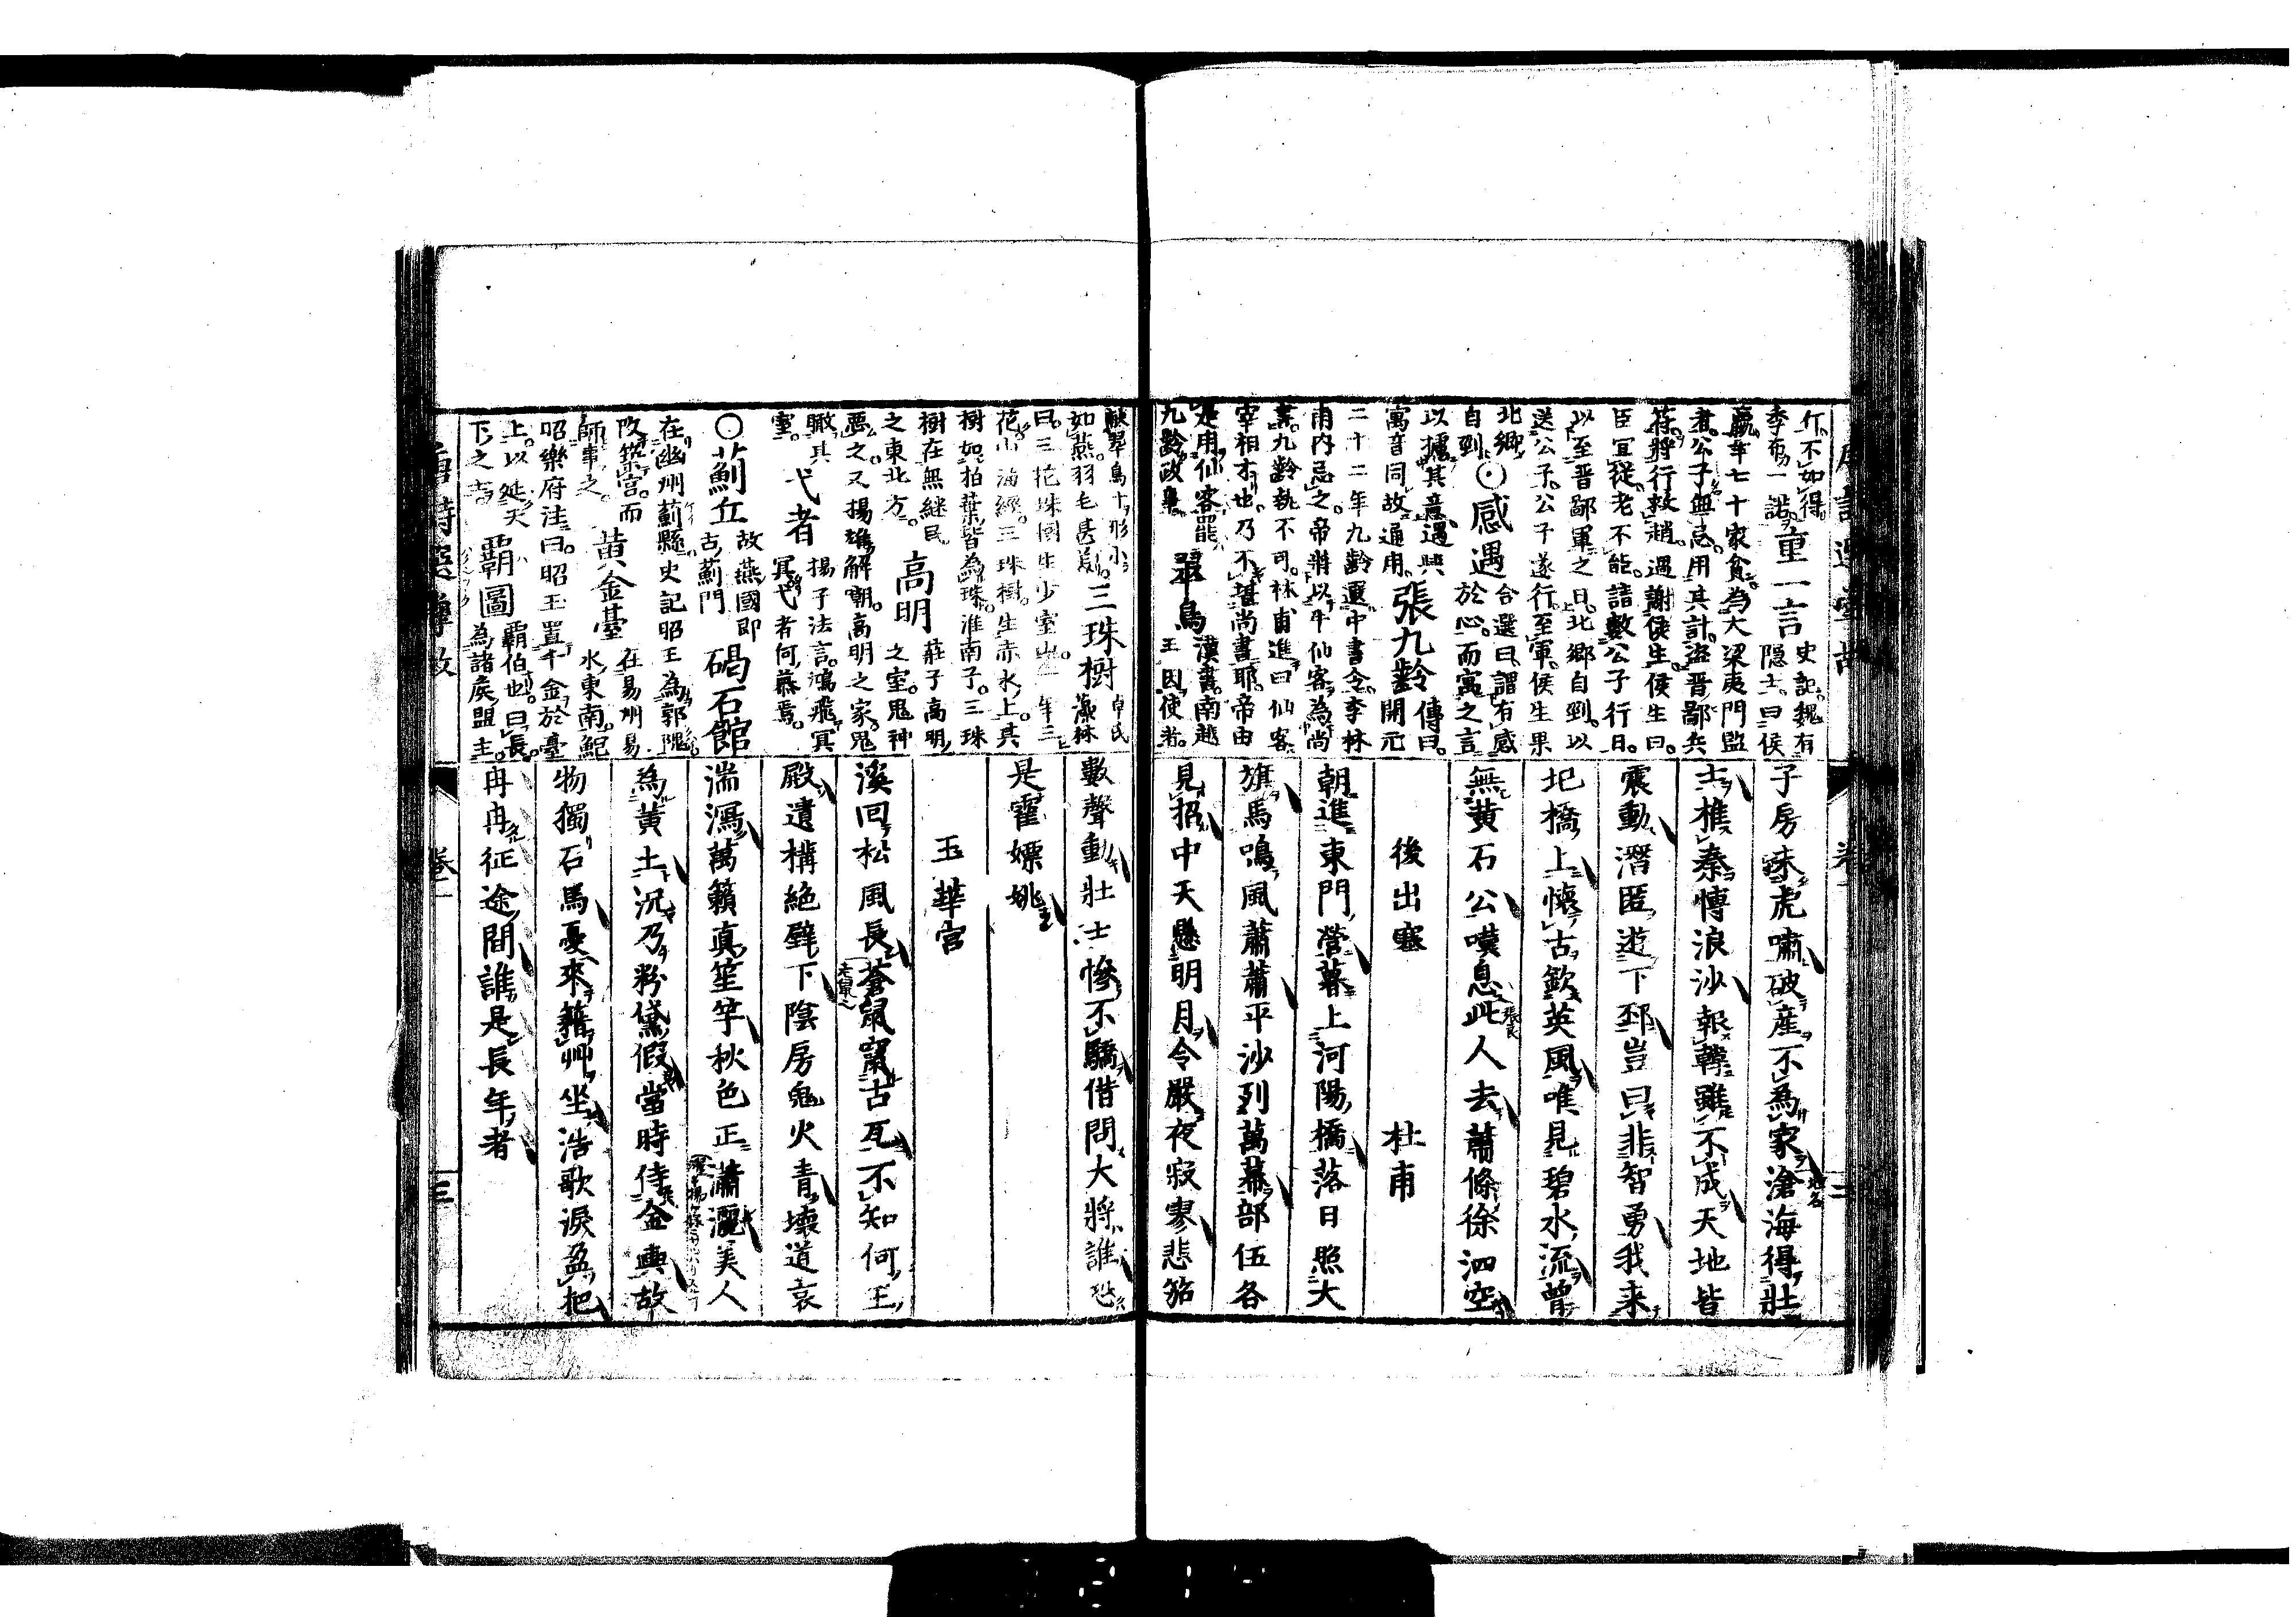 斤不如得
季布一諾重一言史記魏有
隱士曰侯
嬴年七十家貧為大梁夷門監
者公子無忌用其計盜晋鄙兵
符將行救趙過謝侯生侯生曰
臣宜從老不能請數公子行日
以至晋鄙軍之日北鄉自剄以
送公子公子遂行至軍侯生果
北鄉
自剄○感遇合選曰謂有感
於心而寓之言
以攄其意遇與
寓音同故通用張九齡傳曰
開元
二十二年九齡遷中書令李林
甫内忌之帝將以牛仙客為尚
書九齡執不可林甫進曰仙客
宰相才也乃不堪尚書耶帝由
是用仙客罷
九齡政事翠鳥漢書南越
王因使者
献翠鳥十形小
如燕羽毛甚美三珠樹卓氏
藻林
曰三花珠樹生少室山一年三
花山海經三珠樹生赤水上其
樹如柏葉皆為珠淮南子三珠
樹在無継民
之東北方高明莊子高明
之室鬼神
惡之又揚雄解嘲高明之家鬼
瞰其
室弋者揚子法言鴻飛冥
冥弋者何慕焉
○薊丘故燕國即
古薊門碣石館
在幽州薊縣史記昭王為郭隗
改築宮而
師事之黄金臺在易州易
水東南鮑
昭樂府注曰昭王置千金於臺
上以延天
下之士覇圖覇伯也曰長
為諸侯盟主
子房未虎嘯破產不為家滄海得壯
士椎秦慱浪沙報韓雖不成天地皆
震動潛匿遊下邳豈曰非智勇我来
圯橋上懐古欽英風唯見碧水流曽
無黄石公嘆息此人去蕭條徐泗空
後出塞 杜甫
朝進東門營暮上河陽橋落日照大
旗馬鳴風蕭蕭平沙列萬幕部伍各
見招中天懸明月令嚴夜寂寥悲笳
數聲動壯士慘不驕借問大將誰恐
是霍嫖姚
玉華宮
溪回松風長蒼鼠竄古瓦不知何王
殿遺構絶壁下陰房鬼火青壞道哀
湍瀉萬籟真笙竽秋色正蕭灑美人
為黄土況乃粉黛假當時侍金輿故
物獨石馬憂來藉艸坐浩歌淚盈把
冉冉征途間誰是長年者